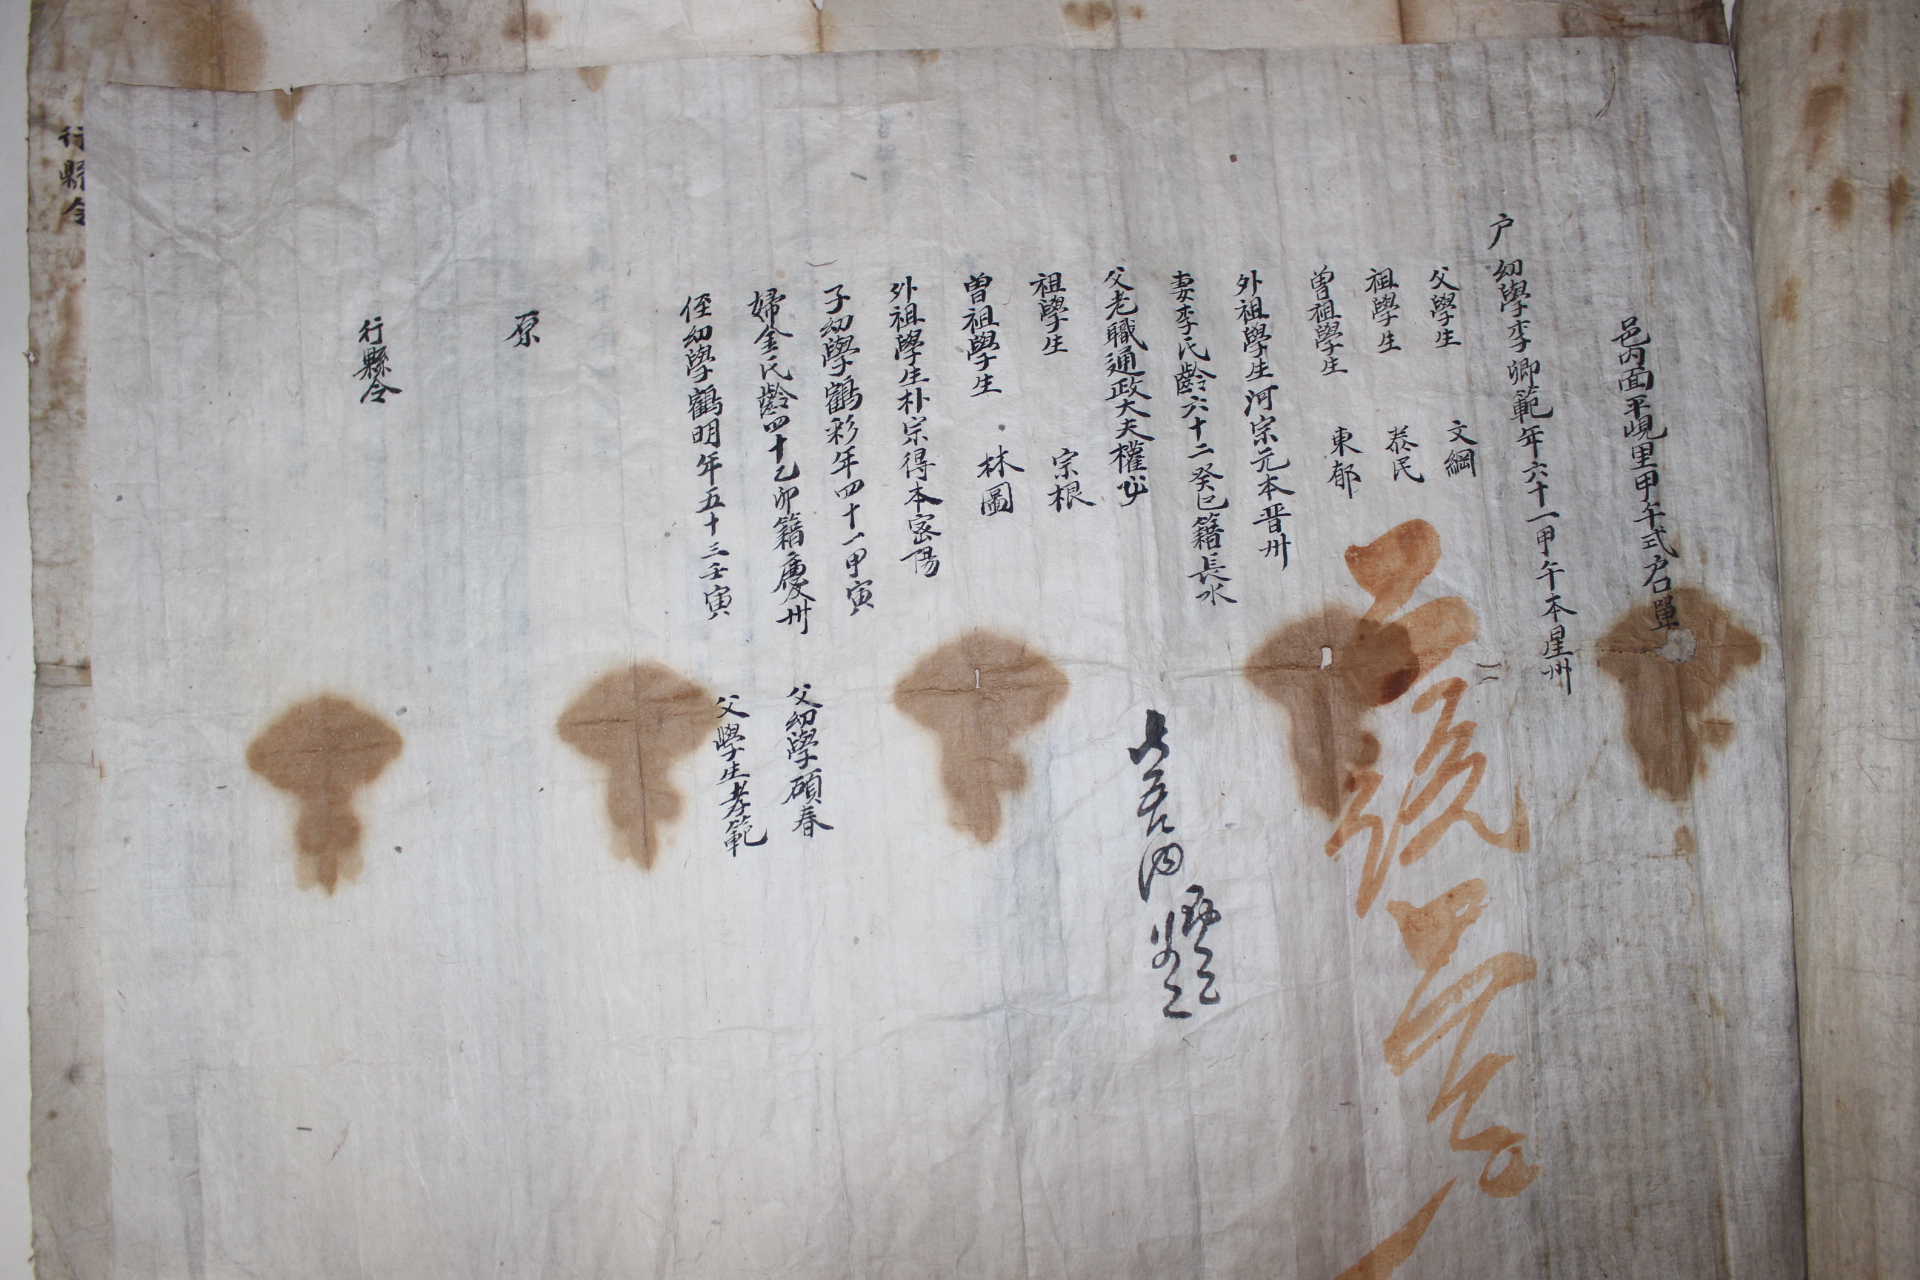 邑内面平峴里甲午式戶口單
戶 幼學李卿範年六十一甲午本星州
父學生 文綱
祖學生 泰民
曾祖學生 東郁
外祖學生河宗元本晋州
妻李氏齡六十二癸巳籍長水
父老職通政大夫權
祖學生 宗根
曾祖學生 林圖
外祖學生朴宗得本密陽
子幼學鶴彩年四十一甲寅
婦金氏齡四十乙卯籍慶州 父幼學碩春
侄幼學鶴明年五十三壬寅 父學生孝範
原
行縣令
行縣令